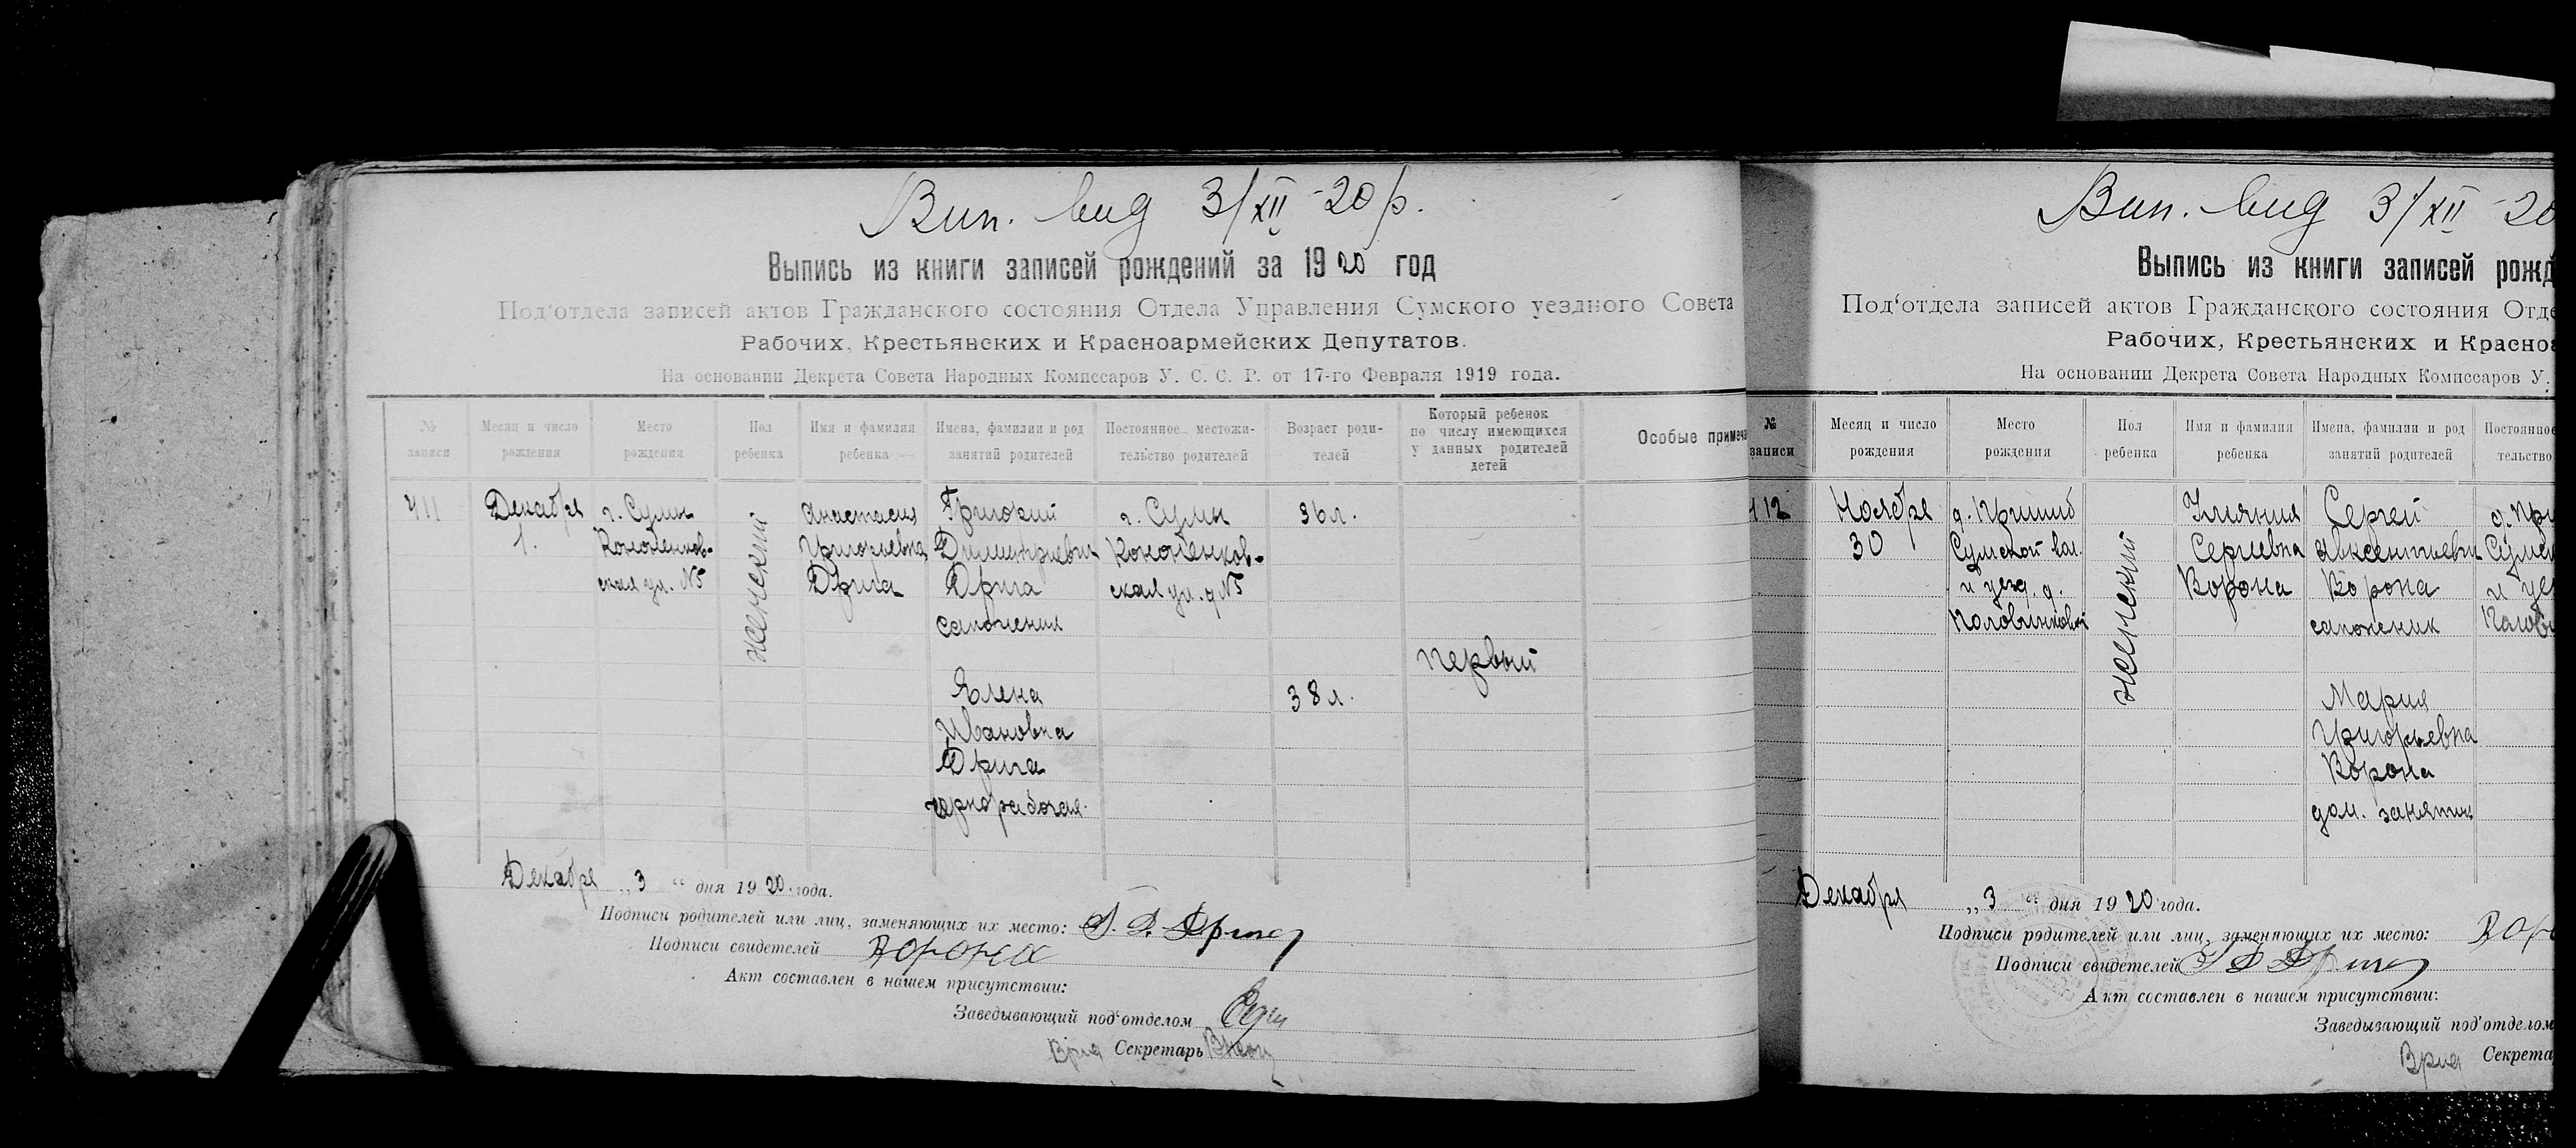 Вип. вид 3/XII-20 р.
Выпись из книги записей рождений за 1920 год
Под‘отдела записей актов Гражданского состояния Отдела Управления Сумского уездного Совета
Рабочих, Крестьянских и Красноармейских Депутатов.
На основании Декрета Совета Народных Комиссаров У. С. С. Р. от 17-го Февраля 1919 года.
№ записи
Месяц и число рождения
Место рождения
Пол ребенка
Имя и фамилия ребенка
Имена, фамилии и род занятий родителей
Постоянное местожительство родителей
Возраст родителей
Который ребенок по числу имеющихся у данных родителей детей
Особые примеча
411
Декабря
1.
г. Сумы
Кононенков-
ская ул. №5
женский
Анастасия
Григорьевна
Дрига
Григорий
Димитриевич
Дрига
сапожник
г. Сумы
Кононенков-
ская ул. д №5
36 л.
первый
Елена
Ивановна
Дрига
чернорабочая.
38 л.
Декабря „ 3 “ дня 1920. года.
Подписи родителей или лиц, заменяющих их место: Г. Д. Дрига
Подписи свидетелей Ворона
Акт составлен в нашем присутствии:
Заведывающий под‘отделом
Врид Секретарь
Вип. вид 3/XII-20
Выпись из книги записей рожд
Под‘отдела записей актов Гражданского состояния Отде
Рабочих, Крестьянских и Красноа
На основании Декрета Совета Народных Комиссаров У.
№ записи
Месяц и число рождения
Место рождения
Пол ребенка
Имя и фамилия ребенка
Имена, фамилии и род занятий родителей
Постоянное
тельство
412
Ноября
30
д. Пришиб
Сумской вол.
и уезд. д.
женский
Ульяния
Сергеевна
Ворона
Сергей
Авксентьевич
Ворона
сапожник
д. При
Сумск
и уе
Мария
Григорьевна
Ворона
дом. занятия
Декабря „ 3 “ дня 1920 года.
Подписи родителей или лиц, заменяющих их место: Вор
Подписи свидетелей Г Д Дрига
Акт составлен в нашем присутствии:
Заведывающий под‘отделом
Врид Секрета